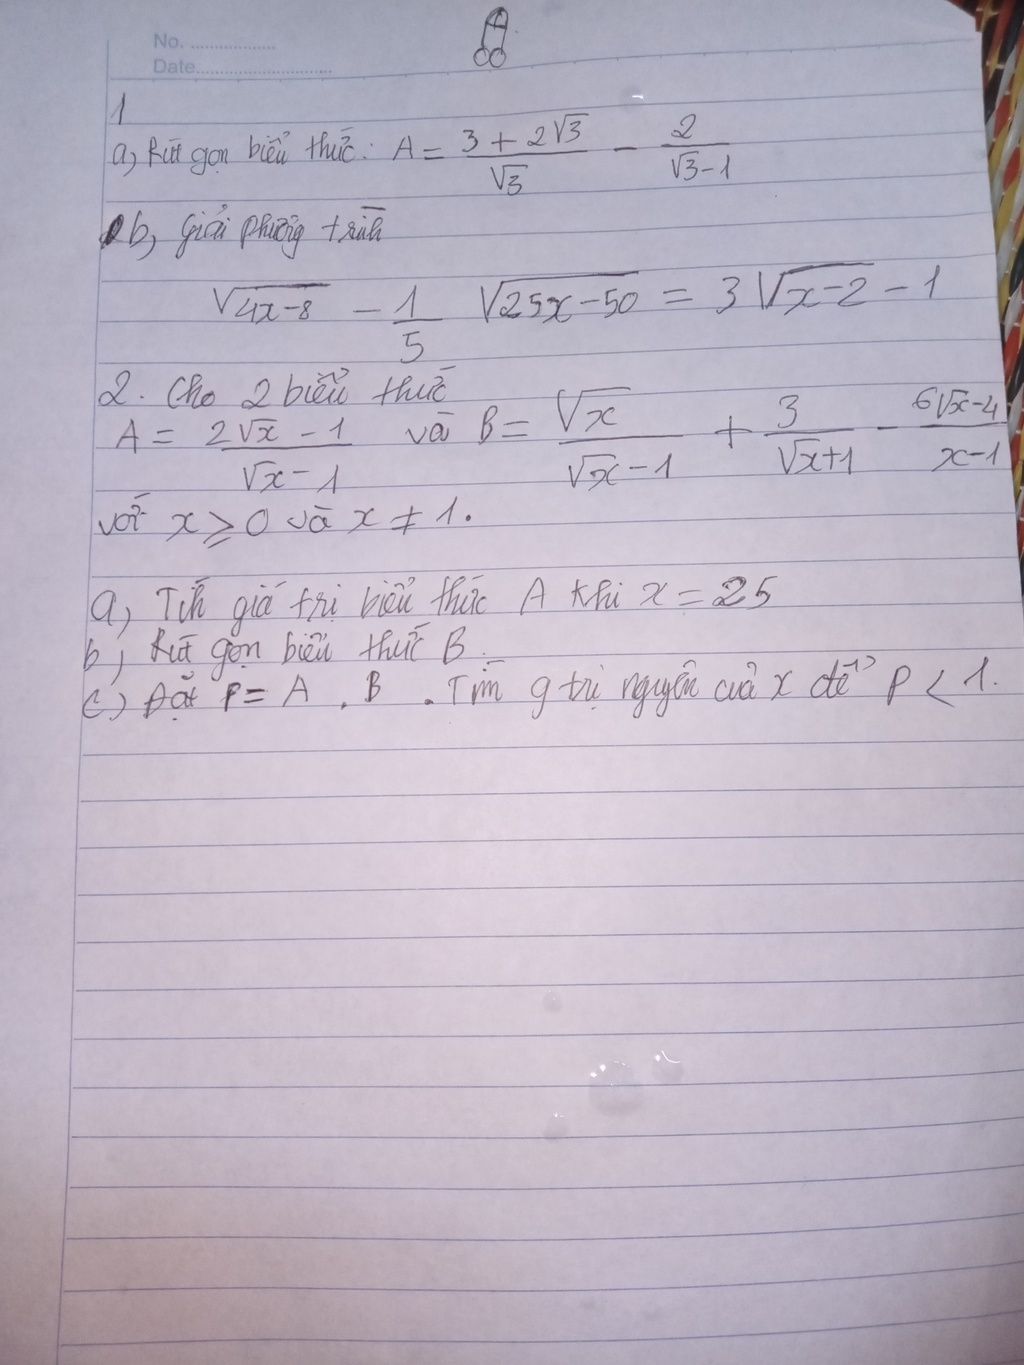 No. ..................
Date..............................
1
a, Rút gọn biểu thức: A = (3 + 2√3)/√3 - 2/(√3-1)
b, Giải phương trình
√(4x-8) - 1/5 √(25x-50) = 3√(x-2) - 1
2. Cho 2 biểu thức
A = (2√x - 1)/(√x - 1) và B = √x/(√x - 1) + 3/(√x+1) - (6√x-4)/(x-1)
với x ≥ 0 và x ≠ 1.
a, Tíh giá trị biểu thức A khi x = 25
b, Rút gọn biểu thức B.
c) Đặt P = A . B . Tìm g trị nguyên của x để P < 1.